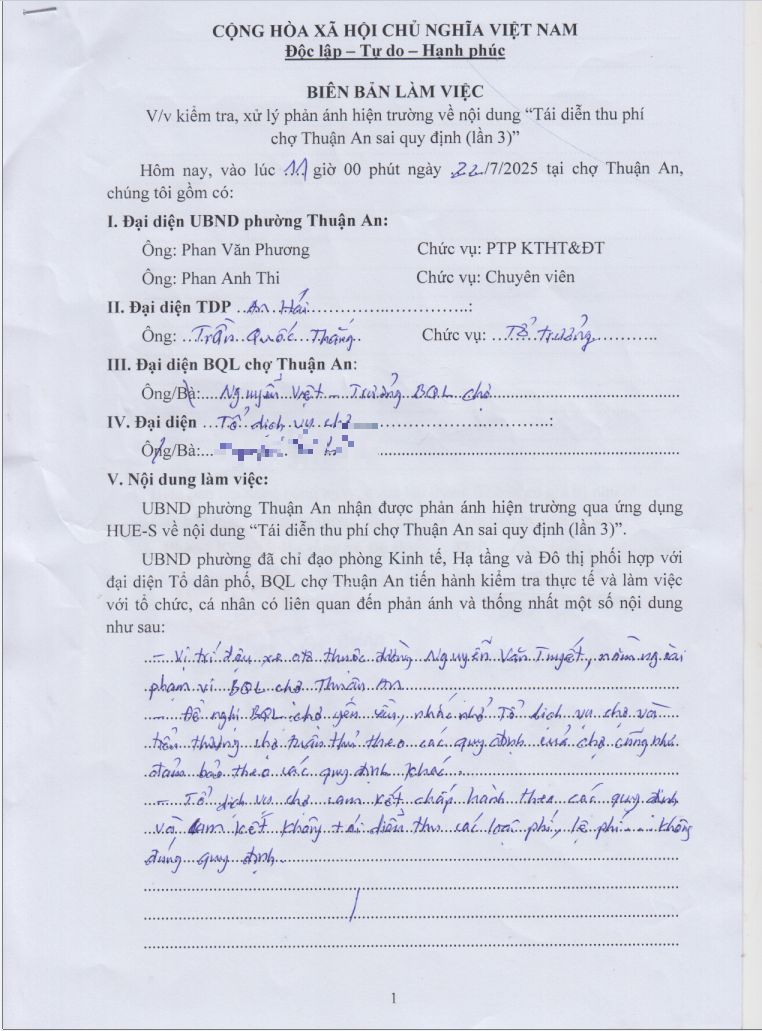 CỘNG HÒA XÃ HỘI CHỦ NGHĨA VIỆT NAM
Độc lập – Tự do – Hạnh phúc
BIÊN BẢN LÀM VIỆC
V/v kiểm tra, xử lý phản ánh hiện trường về nội dung “Tái diễn thu phí
chợ Thuận An sai quy định (lần 3)”
Hôm nay, vào lúc 11 giờ 00 phút ngày 22/7/2025 tại chợ Thuận An,
chúng tôi gồm có:
I. Đại diện UBND phường Thuận An:
Ông: Phan Văn Phương Chức vụ: PTP KTHT&ĐT
Ông: Phan Anh Thi Chức vụ: Chuyên viên
II. Đại diện TDP An Hải:
Ông: Trần Quốc Thắng Chức vụ: Tổ trưởng
III. Đại diện BQL chợ Thuận An:
Ông/Bà: Nguyễn Việt - Trưởng BQL chợ
IV. Đại diện Tổ dịch vụ chợ:
Ông/Bà:
V. Nội dung làm việc:
UBND phường Thuận An nhận được phản ánh hiện trường qua ứng dụng
HUE-S về nội dung “Tái diễn thu phí chợ Thuận An sai quy định (lần 3)”.
UBND phường đã chỉ đạo phòng Kinh tế, Hạ tầng và Đô thị phối hợp với
đại diện Tổ dân phố, BQL chợ Thuận An tiến hành kiểm tra thực tế và làm việc
với tổ chức, cá nhân có liên quan đến phản ánh và thống nhất một số nội dung
như sau:
- Vị trí đậu xe ôtô thuộc đường Nguyễn Văn Tuyết, nằm ngoài
phạm vi BQL chợ Thuận An
- Đề nghị BQL chợ, nhắc nhở Tổ dịch vụ chợ và
tiểu thương chợ tuân thủ theo các quy định của chợ cũng như
đảm bảo theo các quy định khác.
- Tổ dịch vụ chợ cam kết chấp hành theo các quy định
và cam kết không tái diễn thu các loại phí, lệ phí... không
đúng quy định.
1